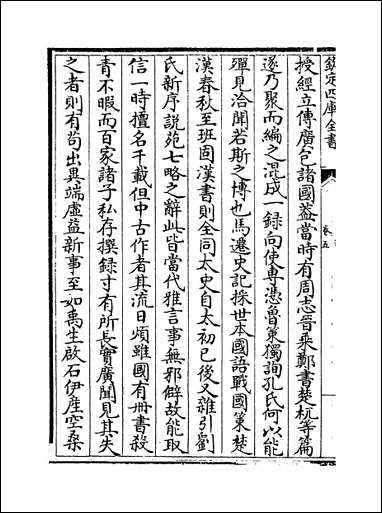 欽定四庫全書
卷五
授經立傳廣包諸國蓋當時有周志晉乗鄭書楚杌等篇
遂乃聚而編之混成一録向使專憑魯策獨詢孔氏何以能
殫見洽聞若斯之博也馬遷史記採世本國語戰國策楚
漢春秋至班固漢書則全同太史自太初已後又雜引劉
氏新序說苑七略之辭此皆當代雅言事無邪僻故能取
信一時擅名千載但中古作者其流日煩雖國有冊書殺
青不暇而百家諸子私存撰録寸有所長實廣聞見其失
之者則有茍出異端虚益新事至如禹生啟石伊産空桑